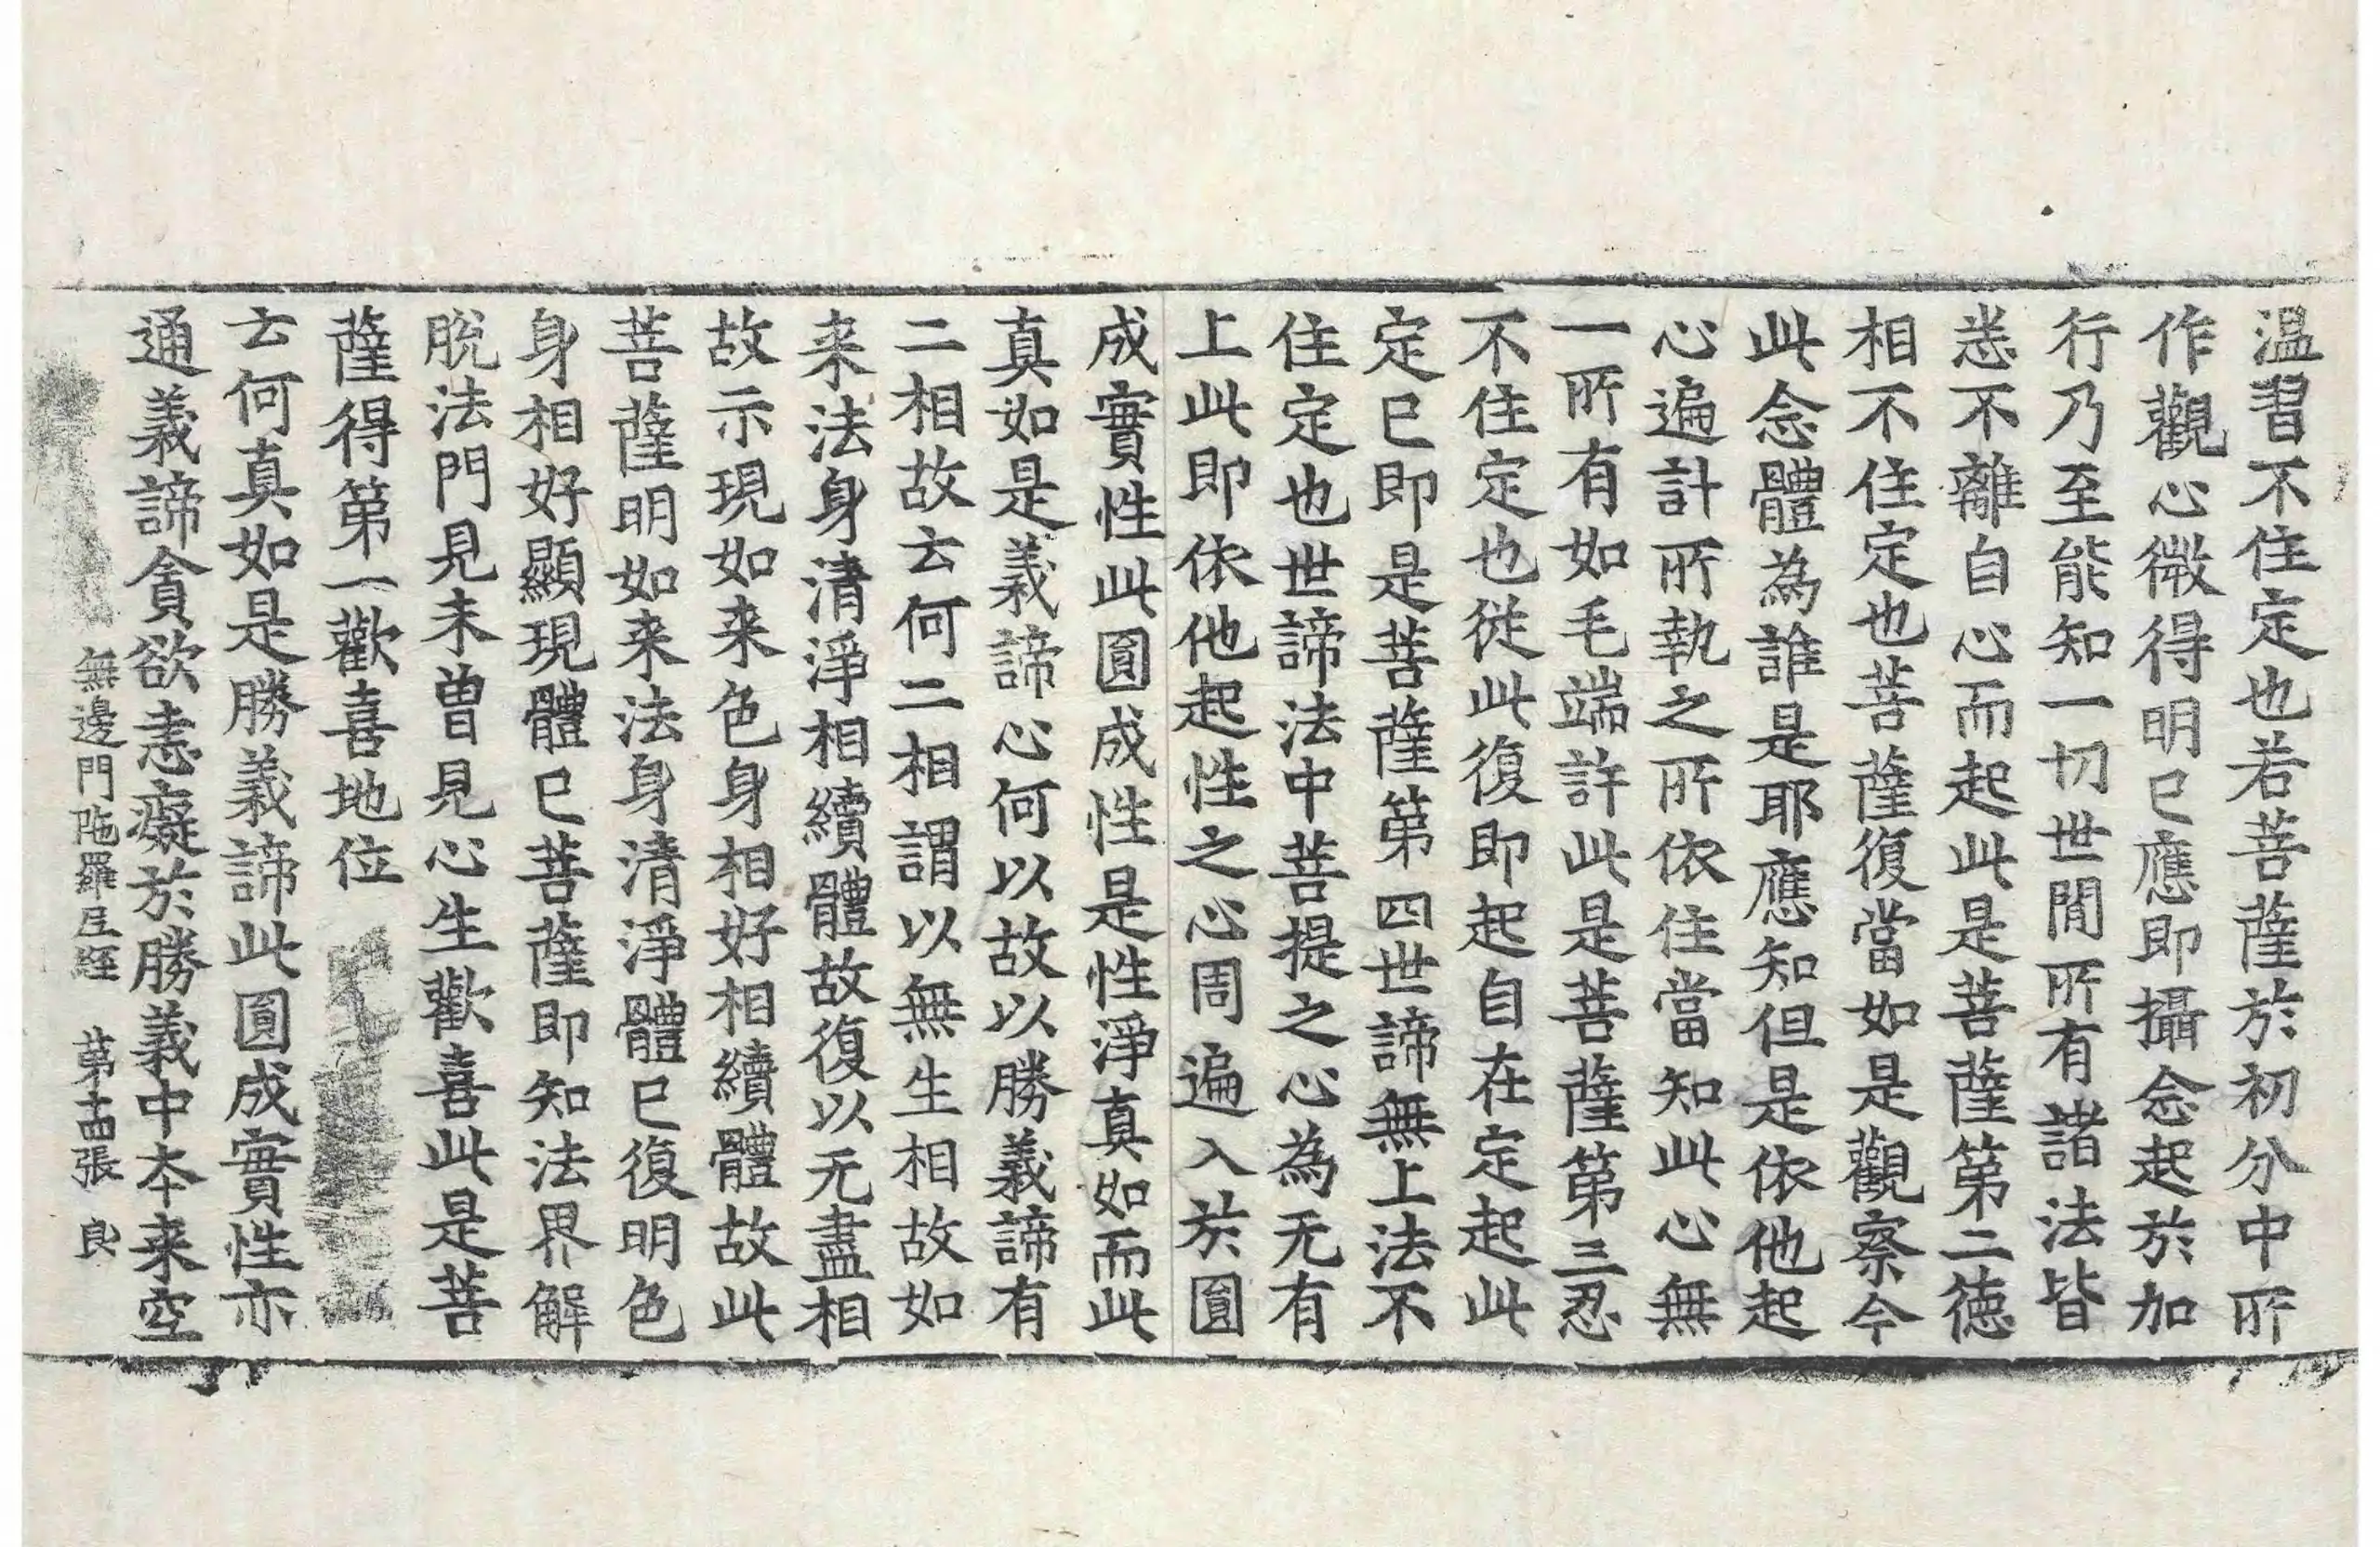 温習不住定也若菩薩於初分中所
作觀心微得明巳應即攝念起於加
行乃至能知一切世間所有諸法皆
悉不離自心而起此是菩薩第二德
相不住定也菩薩復當如是觀察今
此念體為誰是耶應知但是依他起
心遍計所執之所依住當知此心無
一所有如毛端許此是菩薩第三忍
不住定也從此復即起自在定起此
定巳即是菩薩第四世諦無上法不
住定也世諦法中菩提之心為无有
上此即依他起性之心周遍入於圓
成實性此圓成性是性淨真如而此
真如是義諦心何以故以勝義諦有
二相故云何二相謂以無生相故如
来法身清淨相續體故復以无盡相
故示現如来色身相好相續體故此
菩薩明如来法身清淨體巳復明色
身相好顯現體巳菩薩即知法界解
脫法門見未曾見心生歡喜此是菩
薩得第一歡喜地位
云何真如是勝義諦此圓成實性亦
通義諦貪欲恚癡於勝義中本来空
無邊門陁羅尼經 第 張 良